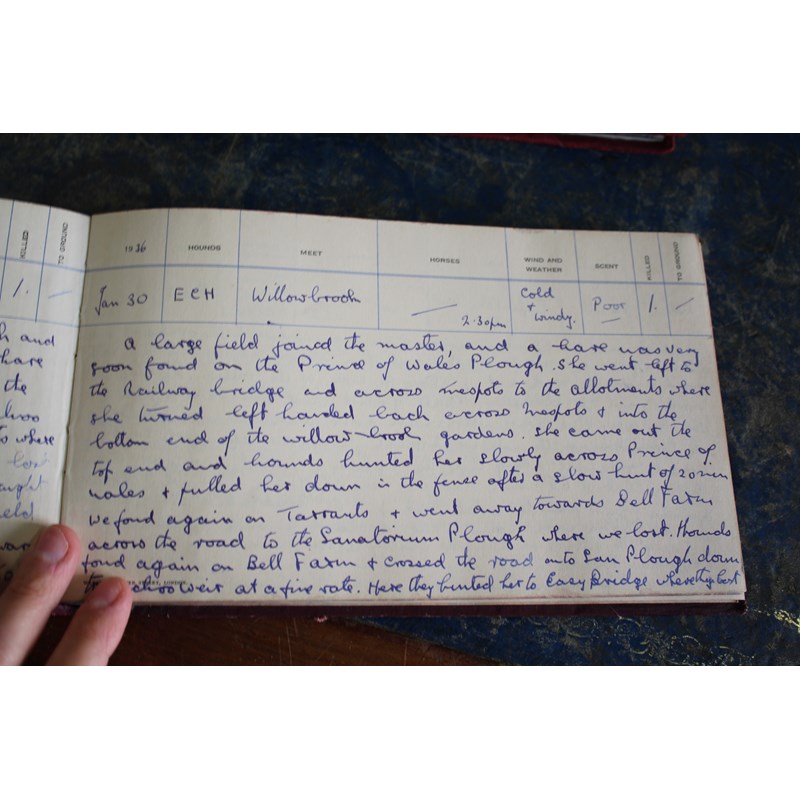 KILLED
TO GROUND
1936 HOUNDS MEET HORSES WIND AND WEATHER SCENT KILLED TO GROUND
1. —
Jan 30 ECH Willowbrook — 2.30pm Cold + windy. Poor 1. —
A large field joined the master, and a hare was very
soon found on the Prince of Wales Plough. She went left to
the Railway bridge and across Mespots to the allotments where
she turned left handed back across Mespots & into the
bottom end of the willow-brook gardens. She came out the
top end and hounds hunted her slowly across Prince of
Wales & pulled her down in the fence after a slow hunt of 20 min
We fond again on Tarrants & went away towards Bell Farm
across the road to the Sanatorium Plough where we lost. Hounds
fond again on Bell Farm & crossed the road onto San Plough down
at a fine rate. Here they hunted her to Easy Bridge where they lost
h and
hare
the
to where
lost
aught
ield